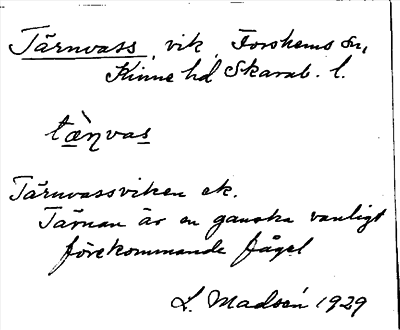 Tärnvass, vik, Forshems sn,
Kinne hd Skarab. l.
tæ̀ṇvas
Tärnvassviken ek.
Tärnan är en ganska vanligt
förekommande fågel
L. Madsén 1929